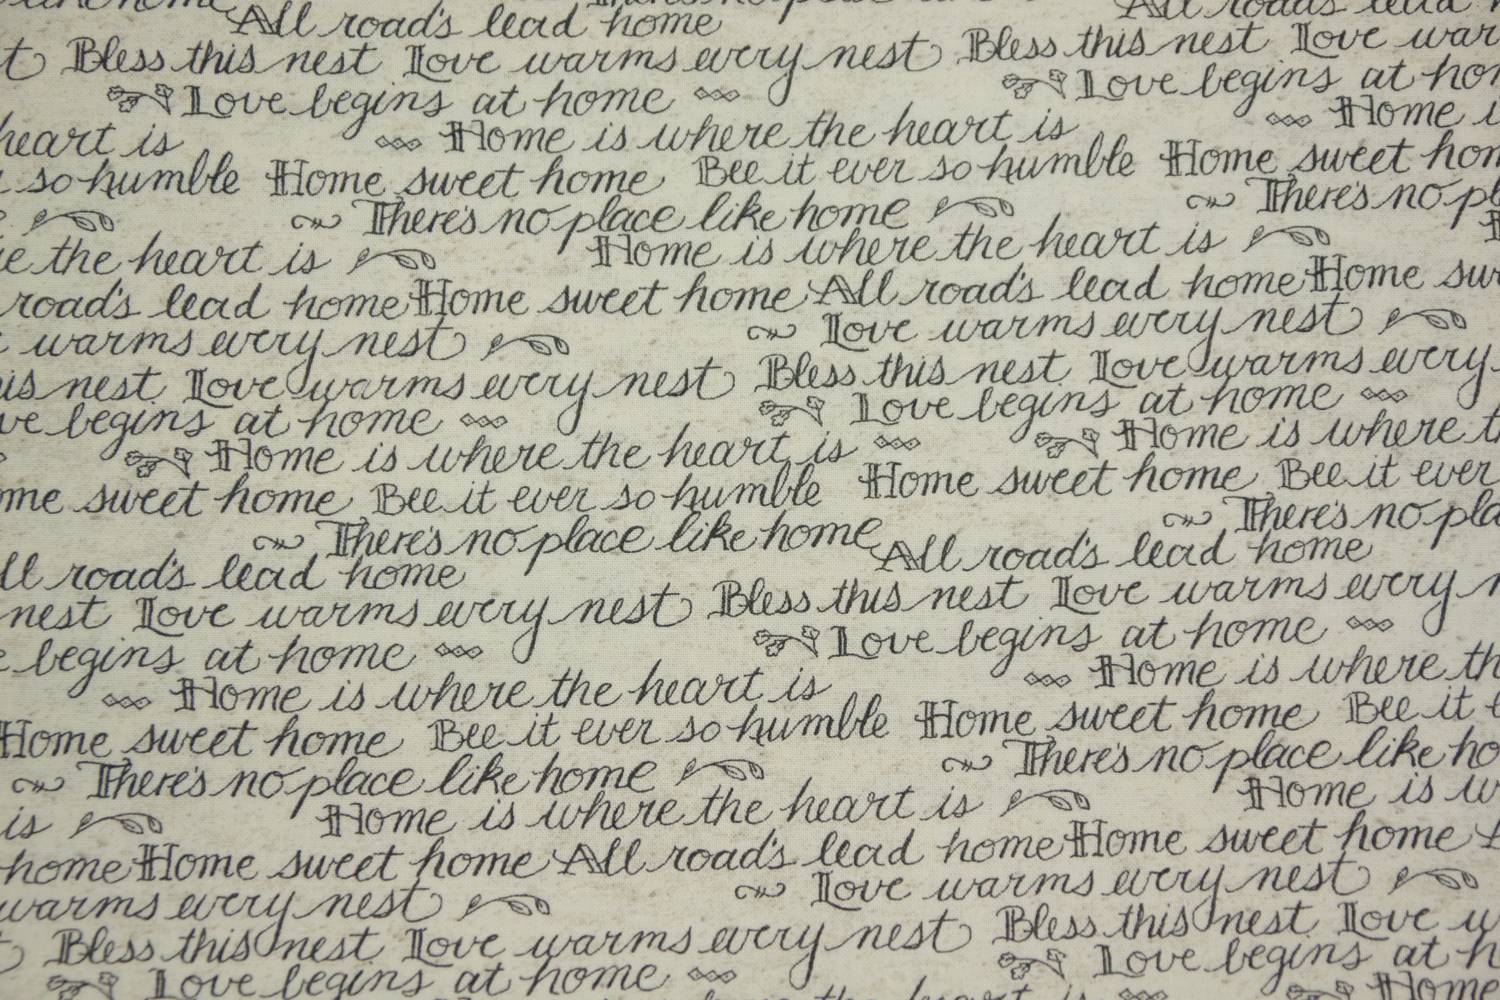 like home There's no place All roads lead
All road's lead home
Bless this nest Love warms every nest Bless this nest Love
Love begins at home Love begins at
heart is Home is where the heart is Home
so humble Home sweet home Bee it ever so humble Home sweet
There's no place like home There's no
the heart is Home is where the heart is
road's lead home Home sweet home All road's lead home Home
warms every nest Love warms every nest
nest Love warms every nest Bless this nest Love warms every
begins at home Love begins at home
Home is where the heart is Home is where
sweet home Bee it ever so humble Home sweet home Bee it ever
There's no place like home There's no
road's lead home All road's lead home
nest Love warms every nest Bless this nest Love warms every
begins at home Love begins at home
Home is where the heart is Home is where
Home sweet home Bee it ever so humble Home sweet home Bee it
There's no place like home There's no place like
is Home is where the heart is Home is
home Home sweet home All road's lead home Home sweet home
warms every nest Love warms every nest
Bless this nest Love warms every nest Bless this nest Love
Love begins at home Love begins at
Home